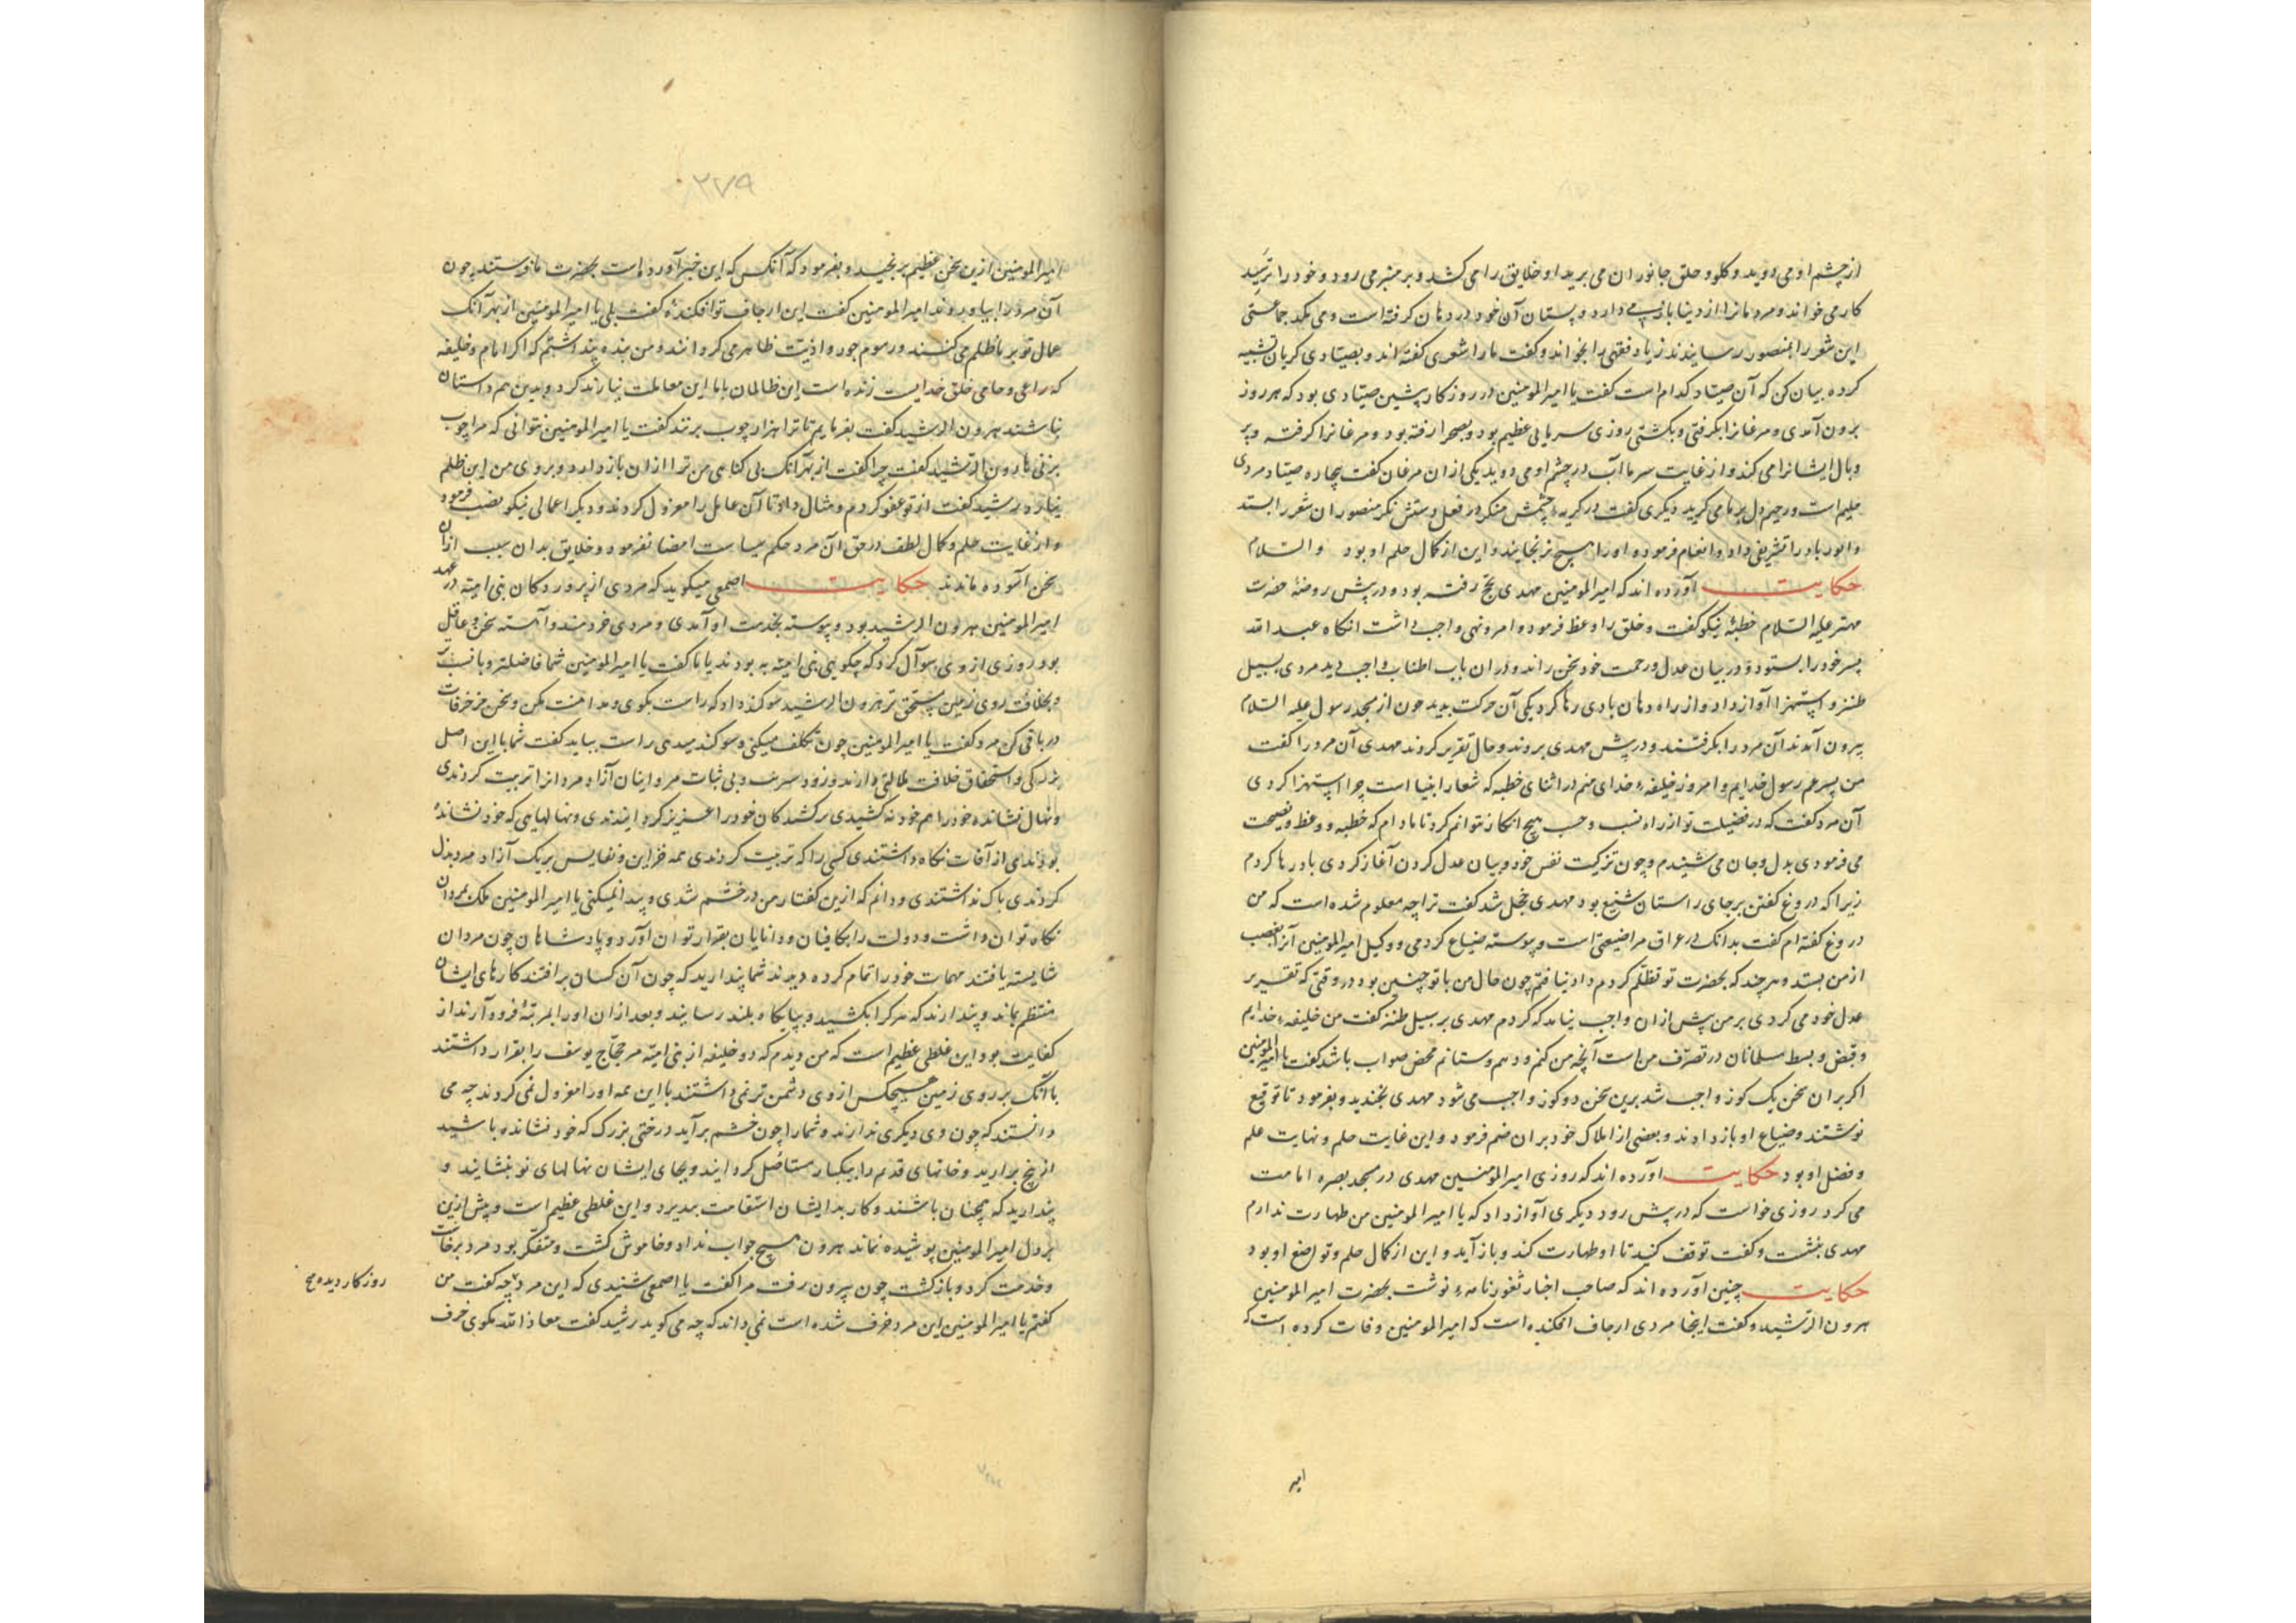 از چشم او می دوید و کلو و حلق جانوران می برید او خلایق را می کشد و بر منبر می رود و خود را
کار می خواند و مردمانرا از دنیا باز می دارد و پستان آن خود در دهان کرفته است و می مکد جماعتی
این شعر را بمنصور رسانیدند زیاد فقهی را بخواند و کفت ما را شعری کفته اند و بصیّادی کریان تشبیه
کرده بیان کن که آن صیّاد کدام است کفت یا امیرالمومنین در روزکار پیشین صیّادی بود که هر روز
برون آمدی و مرغانرا بکرفتی و بکشتی روزی سرمایی عظیم بود و بصحرا رفته بود و مرغانرا کرفته و پر
و بال ایشانرا می کند و از غایت سرما آب در چشم او می دوید یکی از ان مرغان کفت بیچاره صیّاد مردی
حلیم است و رحیم دل بر ما می کرید دیکری کفت در کریهٔ چشمش منکر در فعل دستش نکر منصور ان شعر را بستد
و او را تشریف داد و انعام فرمود و او را هیچ نرنجانید و این از کمال حلم او بود والسّلام
حکایت آورده اند که امیرالمومنین مهدی بحج رفته بود و در پیش روضهٔ حضرت
مهتر علیه السّلام خطبهٔ نیکو کفت و خلق را وعظ فرمود و امر و نهی واجب داشت انکاه عبد الله
پسر خود را بستود و در بیان عدل و رحمت خود سخن راند و در ان باب اطناب واجب دید مردی بسبیل
طنز و استهزا آواز داد و از راه دهان بادی رها کرد یکی آن حرکت بدید چون از مسجد رسول علیه السّلام
بیرون آمدند آن مرد را بکرفتند و در پیش مهدی بردند و حال تقریر کردند مهدی آن مرد را کفت
من پسر عم رسول خدایم و امروز خلیفهٔ خدای منم در اثنای خطبه که شعار انبیا است چرا استهزا کردی
آن مرد کفت که در فضیلت تو از راه نسب و حسب هیچ انکار نتوانم کرد تا مادام که خطبه و وعظ و نصیحت
می فرمودی بدل و جان می شنیدم و چون تزکیت نفس خود و بیان عدل کردن آغاز کردی باد رها کردم
زیرا که دروغ کفتن بر جای راستان شنیع بود مهدی خجل شد کفت ترا چه معلوم شده است که من
دروغ کفته ام کفت بدانک در عراق مرا ضیعتی است و پیوسته ضیاع کردمی و وکیل امیرالمومنین آنرا بغصب
از من بستد و هر چند که بحضرت تو تظلّم کردم داد نیافتم چون حال من با تو چنین بود در وقتی که تقریر
عدل خود می کردی بر من پیش از ان واجب نیامد که کردم مهدی بر سبیل طنز کفت من خلیفهٔ خدایم
و قبض و بسط مسلمانان در تصرّف من است آنچه من کنم و دهم و ستانم محض صواب باشد کفت یا امیرالمومنین
اکر بر ان سخن یک کوز واجب شد برین سخن دو کوز واجب می شود مهدی بخندید و بفرمود تا توقیع
نوشتند و ضیاع او باز دادند و بعضی از املاک خود بر ان ضم فرمود و این غایت حلم و نهایت علم
و فضل او بود حکایت آورده اند که روزی امیرالمومنین مهدی در مسجد بصره امامت
می کرد روزی خواست که در پیش رود دیکری آواز داد که یا امیرالمومنین من طهارت ندارم
مهدی بنشست و کفت توقف کنید تا او طهارت کند و باز آید و این از کمال حلم و تواضع او بود
حکایت چنین آورده اند که صاحب اخبار ثغور نامهٔ نوشت بحضرت امیرالمومنین
هرون الرّشید و کفت اینجا مردی ارجاف افکنده است که امیرالمومنین وفات کرده است
امیر
۲۷۹
امیرالمومنین ازین سخن عظیم برنجید و بفرمود که آنکس که این خبر آورده است بحضرت ما فرستند چون
آن مرد را بیاوردند امیرالمومنین کفت این ارجاف تو افکندهٔ کفت بلی یا امیرالمومنین از بهر آنک
عمال تو بر ما ظلم می کنند و رسوم جور و اذیّت ظاهر می کردانند و من بنده پنداشتم که اکر امام و خلیفه
که راعی و حامی خلق خدایست زنده است این ظالمان با ما این معاملت نیارند کرد و بدین هم داستان
نباشند هرون الرشید کفت بفرمایم تا ترا هزار چوب بزنند کفت یا امیرالمومنین نتوانی که مرا چوب
بزنی هارون الرّشید کفت چرا کفت از بهر آنک بی کناهی من ترا از ان باز دارد و بر وی من این ظلم
نیارد رشید کفت از تو عفو کردم و مثال داد تا آن عامل را معزول کردند و دیکر اعمالی نیکو نصب فرمود
و از غایت حلم و کمال لطف در حق آن مرد حکم سیاست امضا نفرمود و خلایق بدان سبب از ان
سخن آسوده ماندند حکایت اصمعی میکوید که مردی از پروردکان بنی امیّه در عهد
امیرالمومنین هرون الرشید بود و پیوسته بخدمت او آمدی و مردی خردمند و آهسته سخن و عاقل
بود روزی از وی سوال کرد که چکویی بنی امیّه به بودند یا ما کفت یا امیرالمومنین شما فاضلتر و با نسب تر
و بخلافت روی زمین مستحق تر هرون الرشید سوکند داد که راست بکوی و مداهنت مکن و سخن مزخرفات
در باقی کن مرد کفت یا امیرالمومنین چون تکلف میکنی و سوکند میدهی راست بباید کفت شما با این اصل
بزرکی و استحقاق خلافت ملالتی دارند و زود سیرید و بی ثبات مر و اینان آزاد مردانرا تربیت کردندی
و نهال نشانده خود را هم خود نه کشیدی برکشیدکان خود را عزیز کردانیدندی و نهالهایی که خود نشاندهٔ
بودندی از آفات نکاه داشتندی کسی را که تربیت کردندی همه خزاین و نفایس بر یک آزاد مرد بذل
کردندی باک نداشتندی و دانم که ازین کفتار من در خشم شدی و پیدا نمیکنی یا امیرالمومنین ملک بمردان
نکاه توان داشت و دولت را بکافیان و دانایان بقرار توان آورد و پادشاهان چون مردان
شایسته یافتند مهمات خود را تمام کرده دیدند شما پندارید که چون آن کسان برافتند کارهای ایشان
منتظم بماند و پندارند که هر کرا بکشید و بپایکاه بلند رسانید و بعد از ان او را بمرتبهٔ فرود آرند از
کفایت بود این غلطی عظیم است که من دیدم که دو خلیفه از بنی امیّه مر حجّاج یوسف را بقرار داشتند
با آنک بر روی زمین هیچکس از وی دشمن تر نمی داشتند با این همه او را معزول نمی کردند چه می
دانستند که چون وی دیکری ندارند و شما را چون خشم برآید درختی بزرک که خود نشانده باشید
از بیخ برارید و خانهای قدیم را بیکبار مستأصل کردانید و بجای ایشان نهالهای نو بنشانید و
پندارید که همچنان باشند و کار بدایشان استقامت پذیرد و این غلطی عظیم است و پیش ازین
بر دل امیرالمومنین پوشیده نماند هرون هیچ جواب نداد و خاموش کشت و متفکر بود مرد برخاست
و خدمت کرد و بازکشت چون بیرون رفت مرا کفت یا اصمعی شنیدی که این مرد چه کفت من
روزکار دیده
کفتم یا امیرالمومنین این مرد خرف شده است نمی داند که چه می کوید رشید کفت معاذ الله مکوی خرف